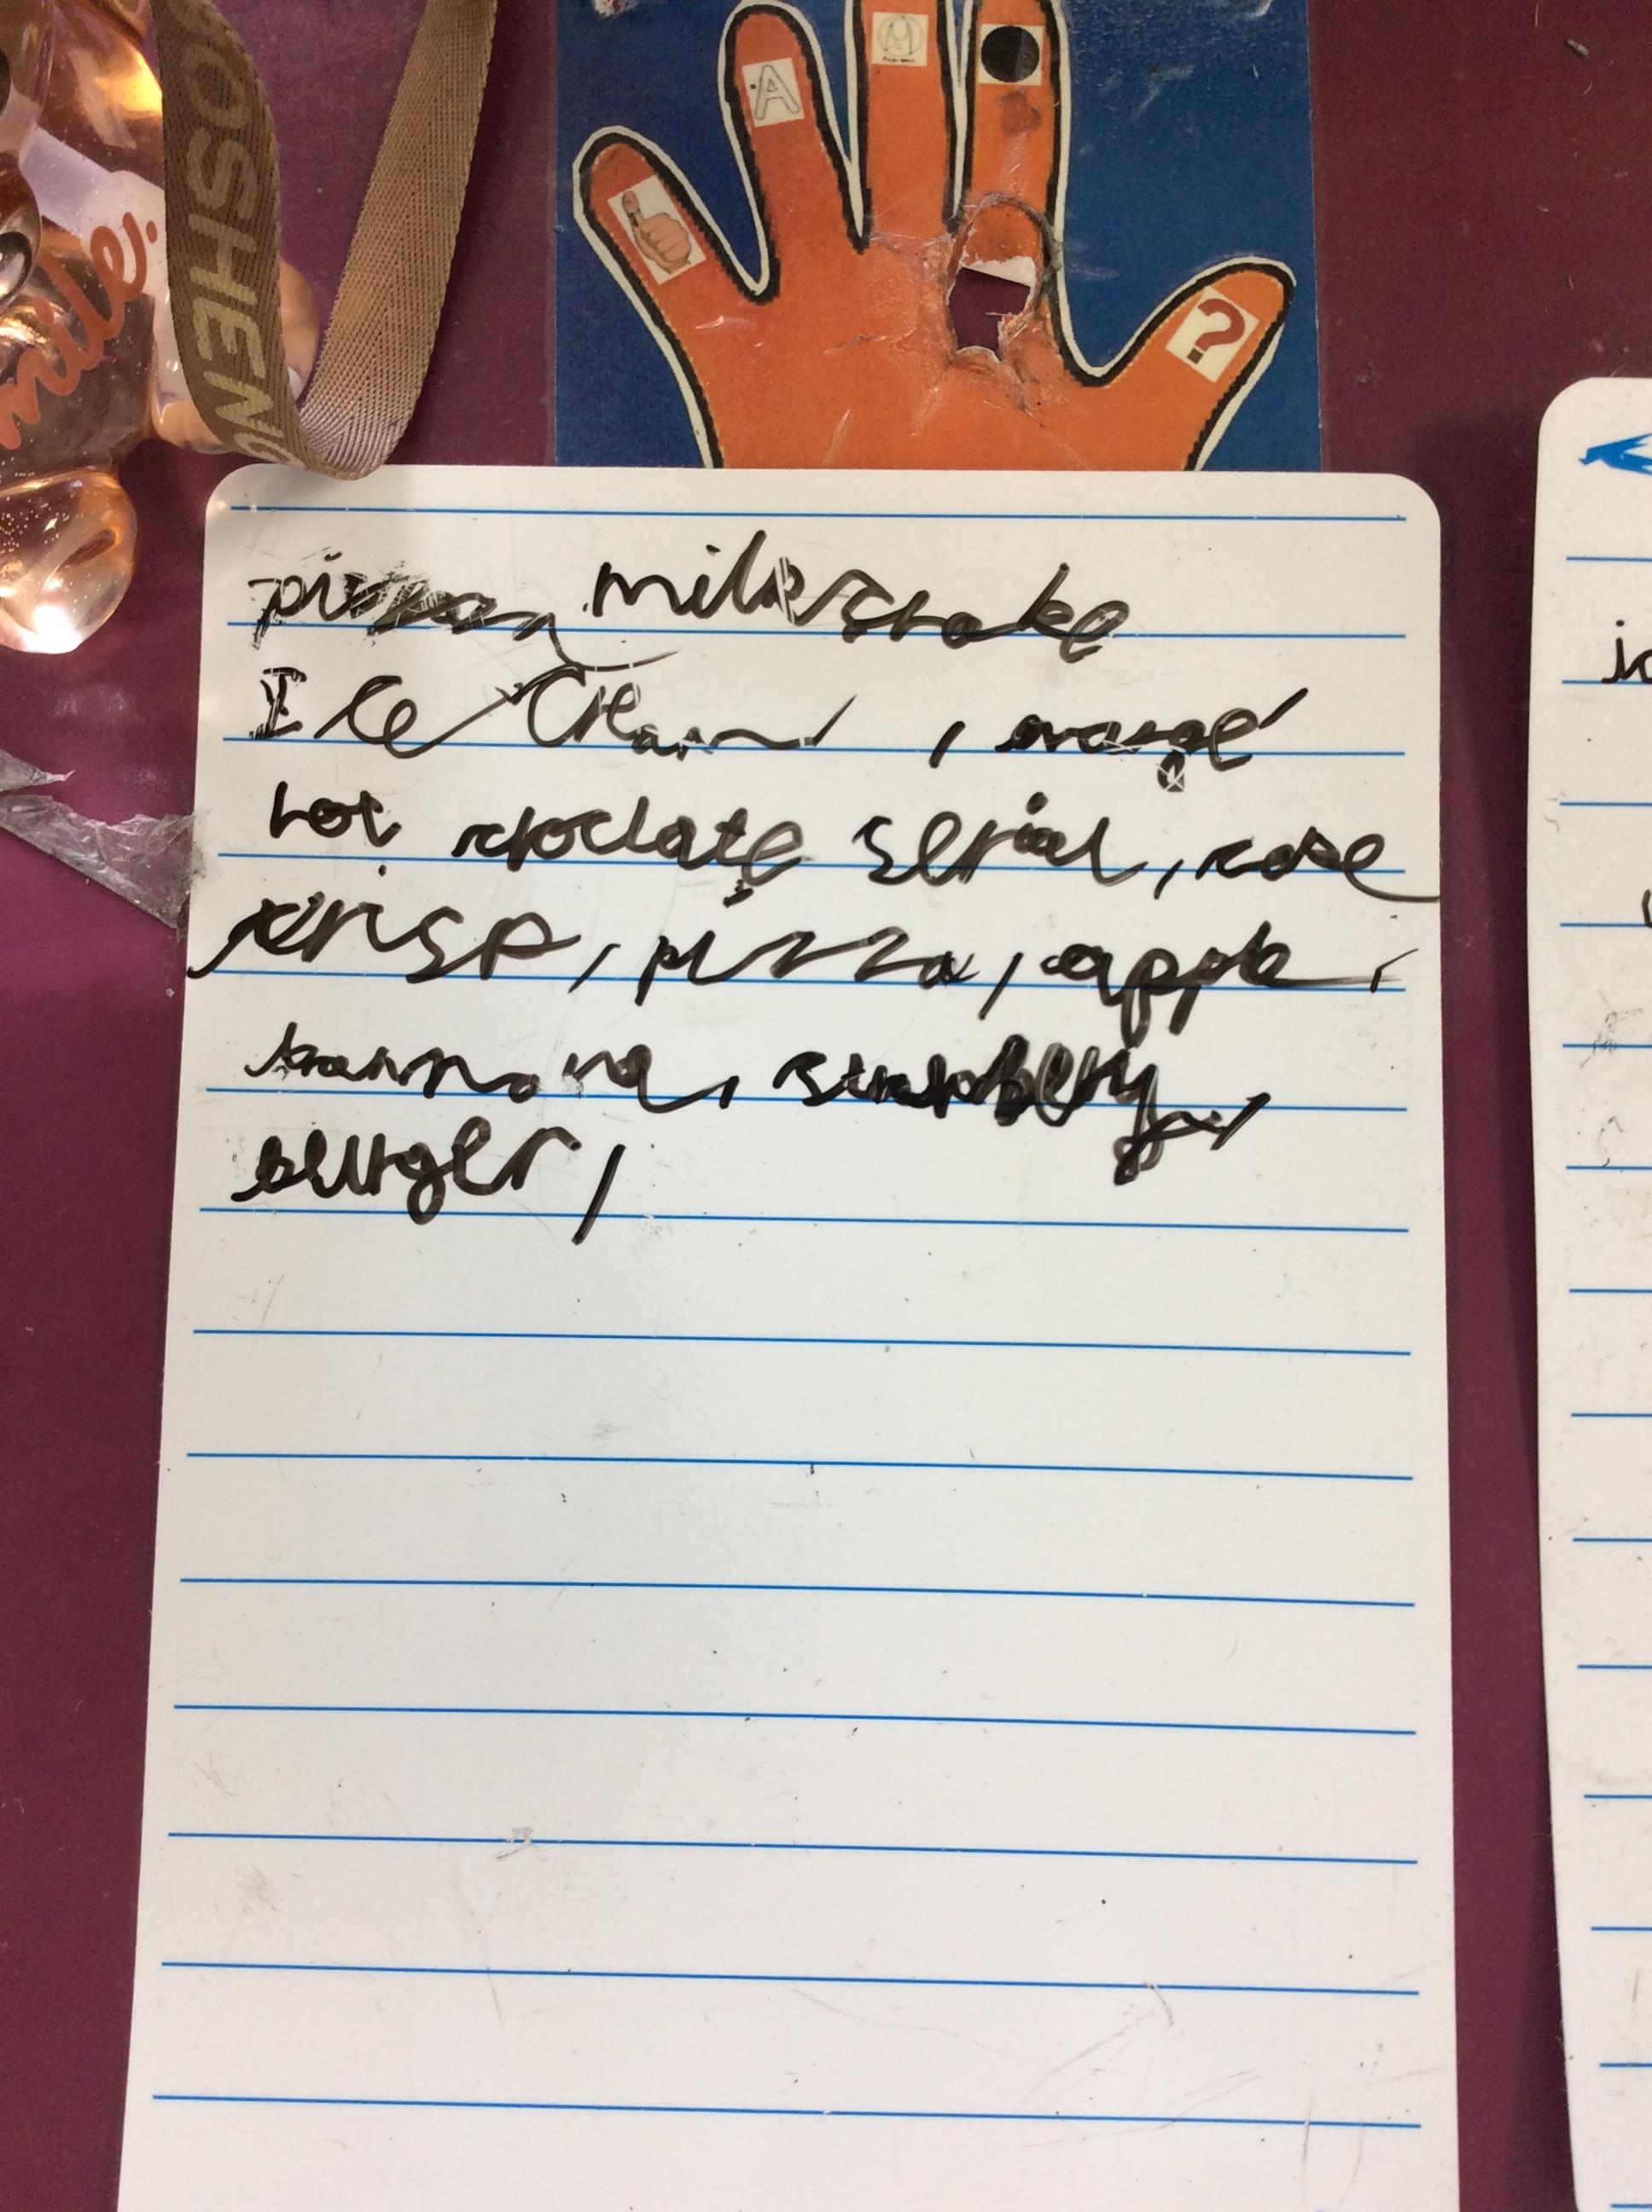 OSHEN
A
?
milkshake
Ice Cream, orange
hot choclate serial, cake
crisp, pizza, apple,
bannana, strawberry,
burger,